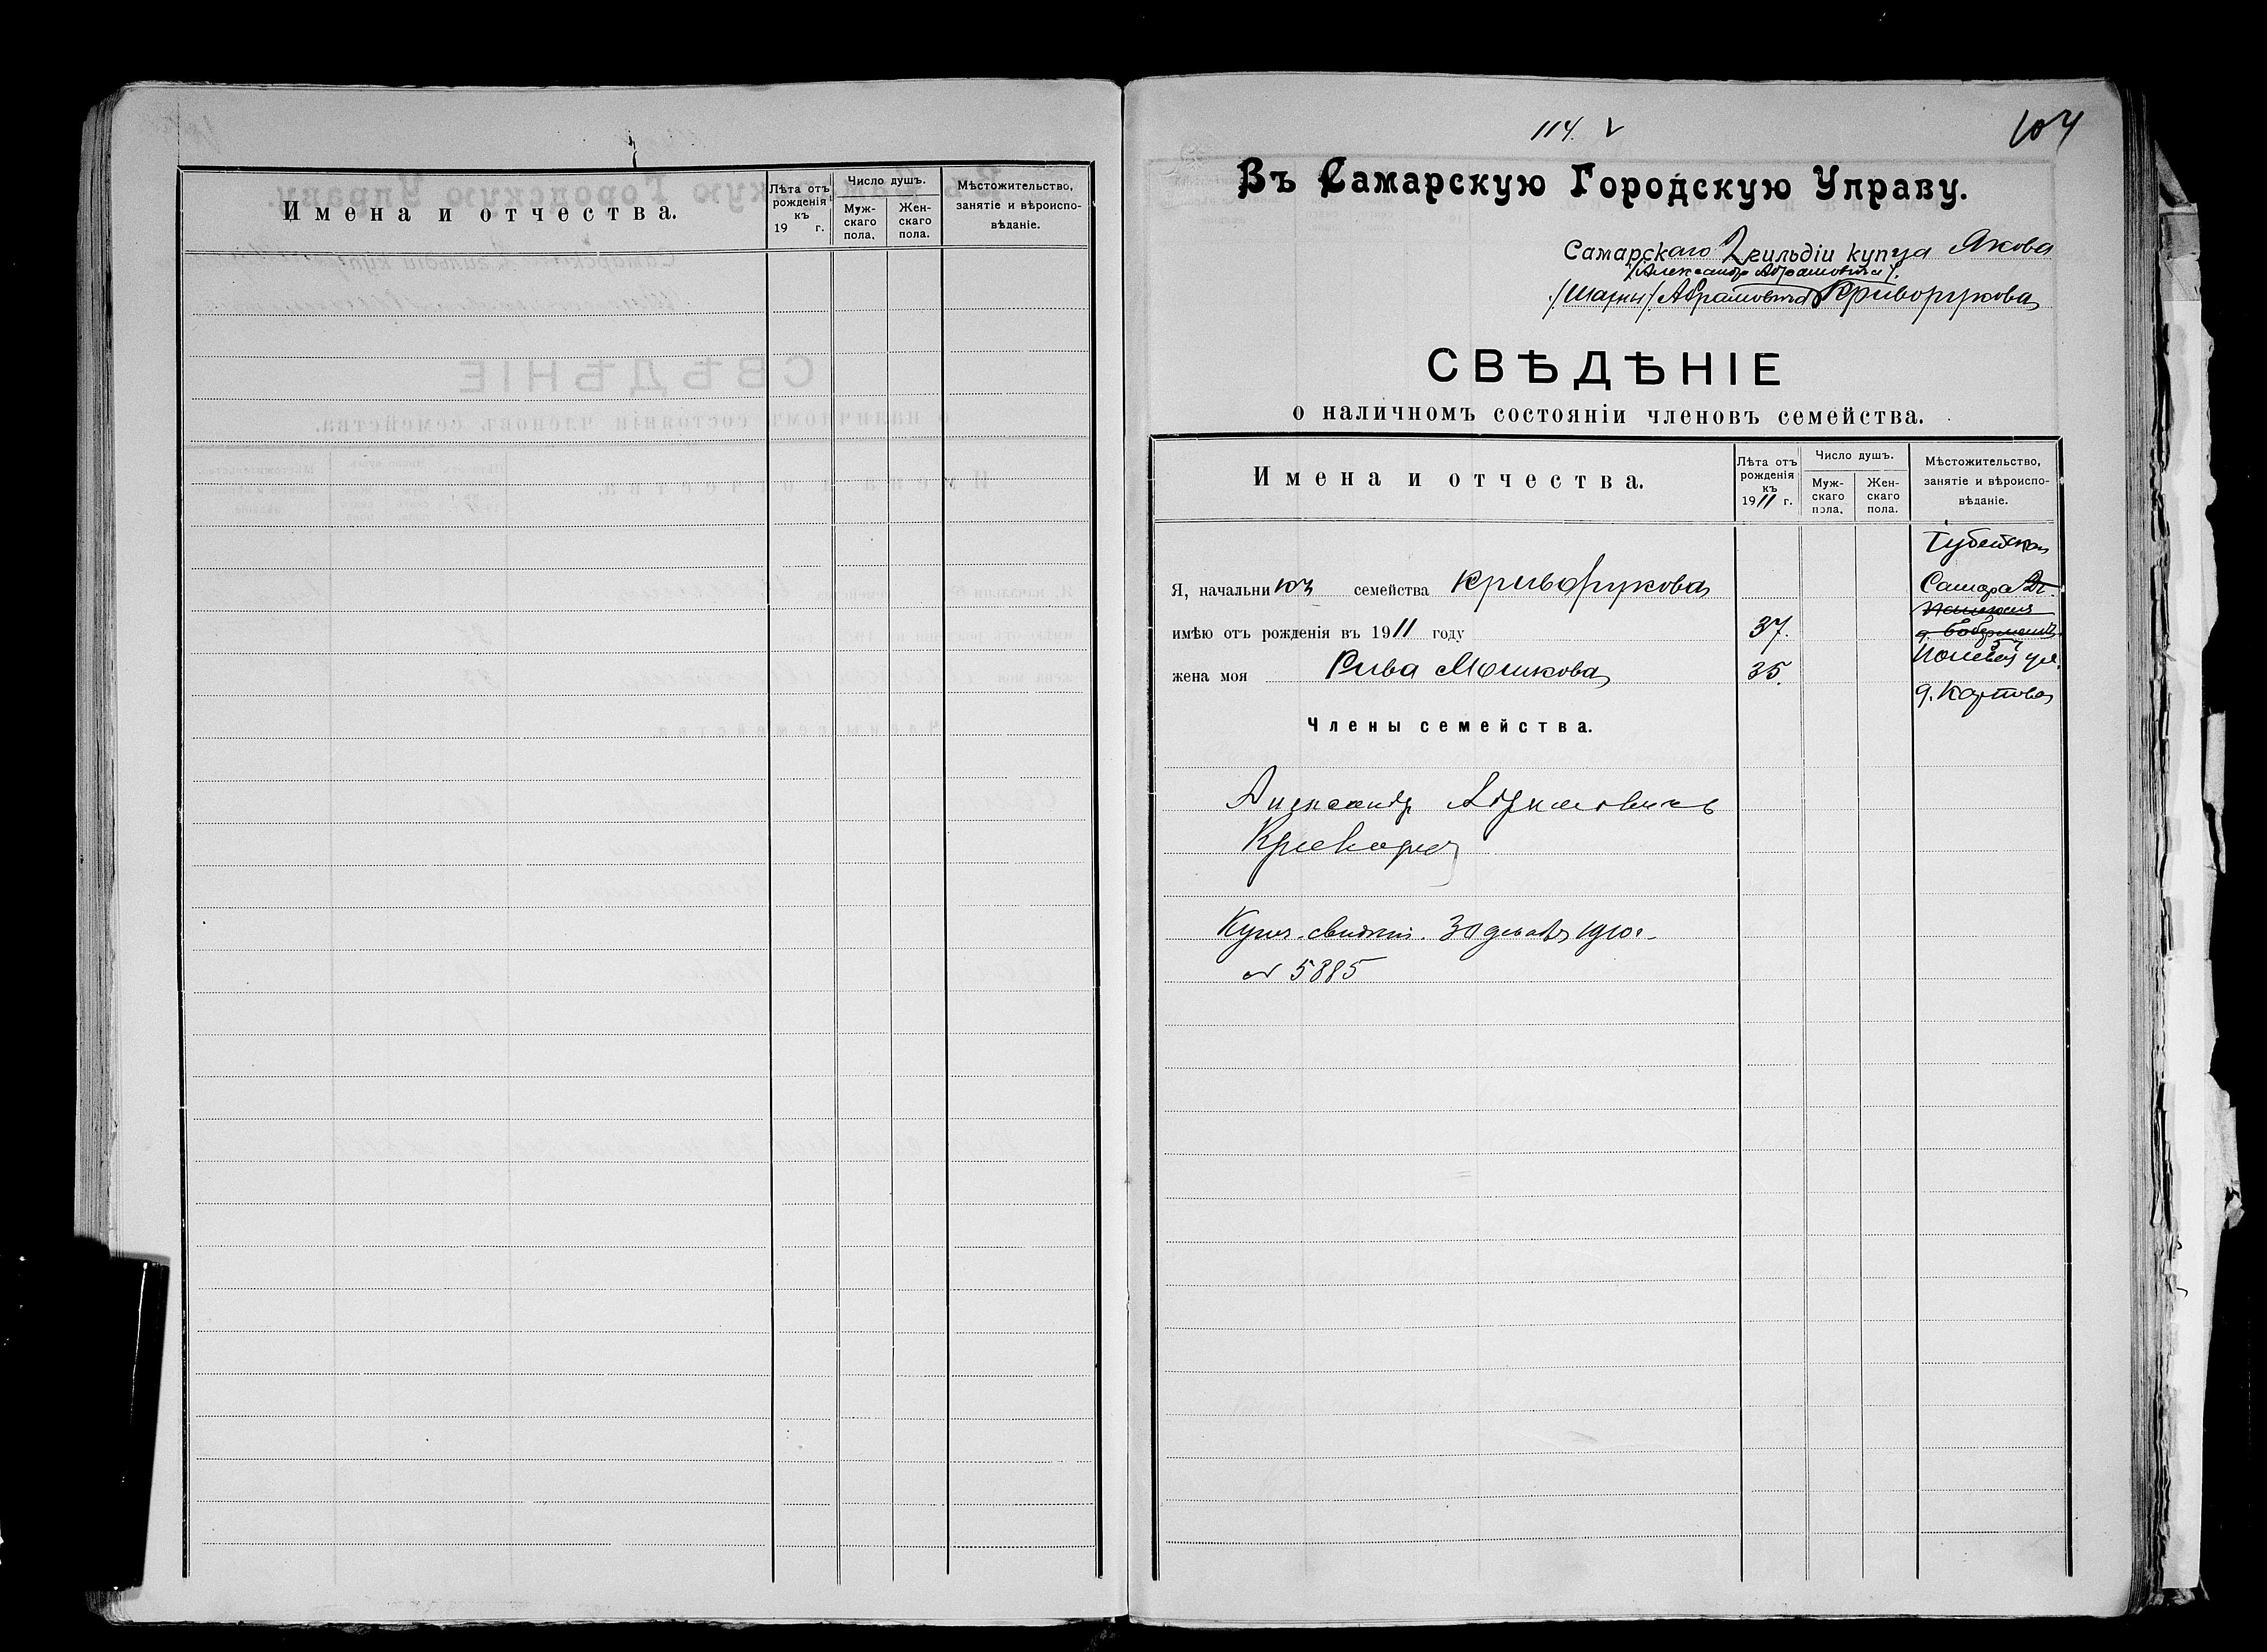 Имена и отчества.
Лѣта отъ рожденія къ 19 г.
Число душъ.
Муж-скаго пола.
Жен-скаго пола.
Мѣстожительство, занятіе и вѣроиспо-вѣданіе.
114. V
104
Въ Самарскую Городскую Управу.
Самарскаго 2 гильдіи купца Якова
/Александръ Абрамовичъ/.
/Шаи/ Абрамовича Криворукова
СВѢДѢНІЕ
о наличномъ состояніи членовъ семейства.
Имена и отчества.
Лѣта отъ рожденія къ 1911 г.
Число душъ.
Муж-скаго пола.
Жен-скаго пола.
Мѣстожительство, занятіе и вѣроиспо-вѣданіе.
Іудейская
Я, начальникъ семейства Криворукова
Самара
имѣю отъ рожденія въ 1911 году 37.
Полевая ул.
жена моя Рива Мошкова 35.
д. Карпова
Члены семейства.
Александръ Абрамовичъ
Криворук
Купч. свидт. 30 декабр 1910 г.
№ 5885